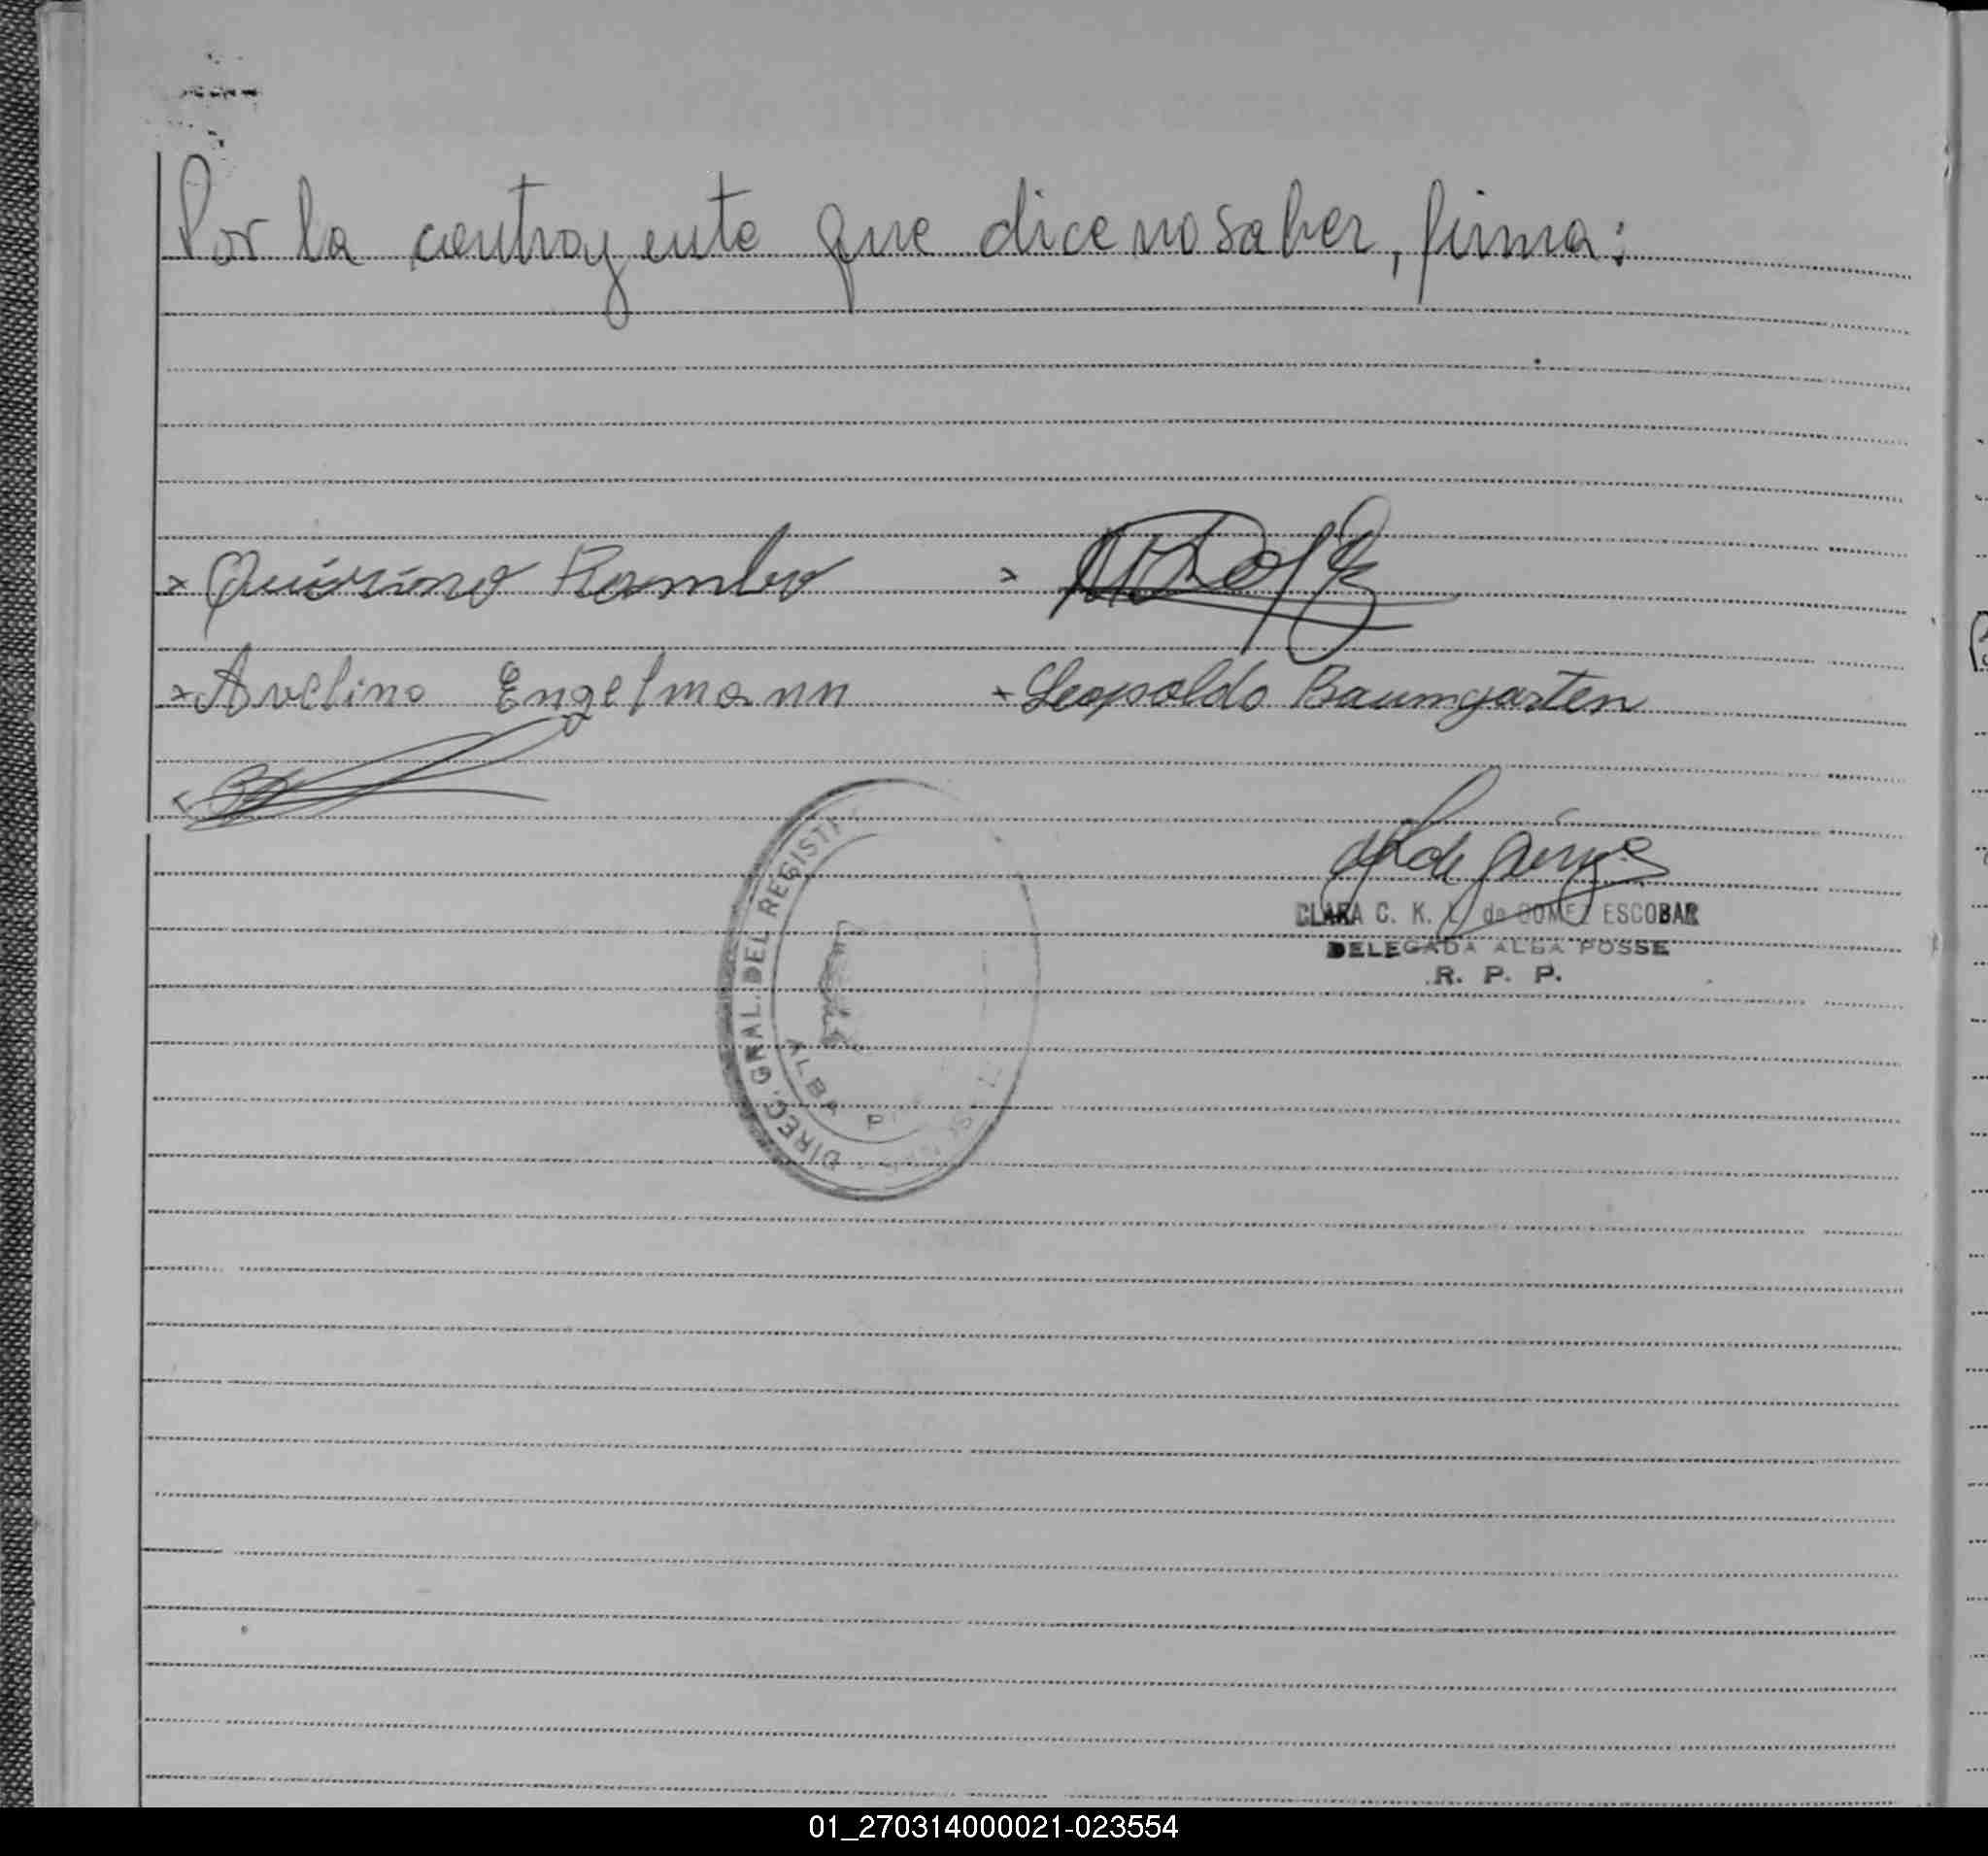 Por la contrayente que dice no saber, firma:
x Quirino Rambo x
x Avelino Engelmann x Leopoldo Baumgarten
x
DIREC. GRAL. DEL REGISTR
ALBA P
CLARA C. K. L. de GOMEZ ESCOBAR
DELEGADA ALBA POSSE
R. P. P.
01_270314000021-023554